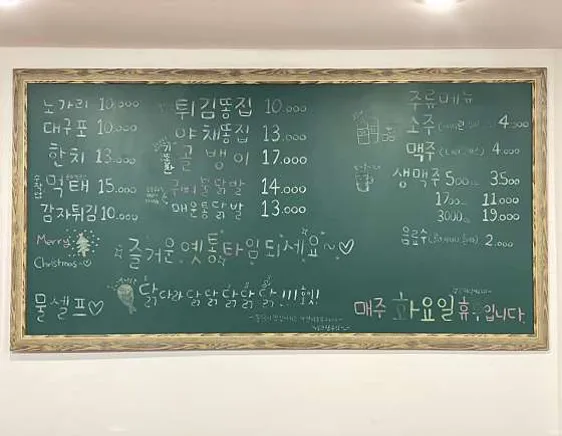 노가리 10.000
대구포 10.000
한치 13.000
먹태 15.000
감자튀김 10.000
튀김똥집 10.000
야채똥집 13.000
골뱅이 17.000
구버불닭발 14.000
매운통닭발 13.000
주류메뉴
소주 4.000
맥주 4.000
생맥주 500cc 3500
1700cc 11000
3000cc 19.000
음료수 2.000
Merry
Christmas
즐거운 옛통타임되세요~♡
물 셀프♡
닭다라닭닭닭닭!!!
매주 화요일 휴무입니다.